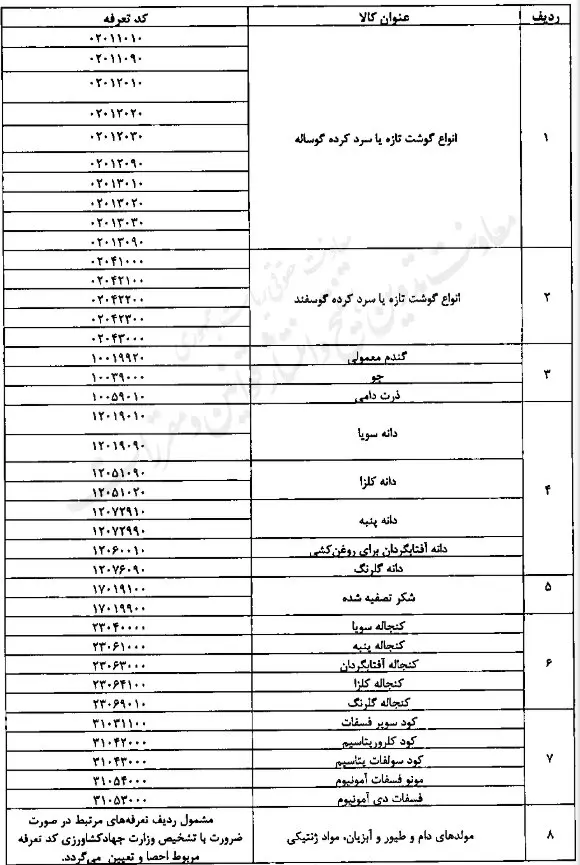 ردیف عنوان کالا کد تعرفه
۱ انواع گوشت تازه یا سرد کرده گوساله ۰۲۰۱۱۰۱۰
۰۲۰۱۱۰۹۰
۰۲۰۱۲۰۱۰
۰۲۰۱۲۰۲۰
۰۲۰۱۲۰۳۰
۰۲۰۱۲۰۹۰
۰۲۰۱۳۰۱۰
۰۲۰۱۳۰۲۰
۰۲۰۱۳۰۳۰
۰۲۰۱۳۰۹۰
۲ انواع گوشت تازه یا سرد کرده گوسفند ۰۲۰۴۱۰۰۰
۰۲۰۴۲۱۰۰
۰۲۰۴۲۲۰۰
۰۲۰۴۲۳۰۰
۰۲۰۴۳۰۰۰
۳ گندم معمولی ۱۰۰۱۹۹۲۰
جو ۱۰۰۳۹۰۰۰
ذرت دامی ۱۰۰۵۹۰۱۰
۴ دانه سویا ۱۲۰۱۹۰۱۰
۱۲۰۱۹۰۹۰
دانه کلزا ۱۲۰۵۱۰۹۰
۱۲۰۵۱۰۲۰
دانه پنبه ۱۲۰۷۲۹۱۰
۱۲۰۷۲۹۹۰
دانه آفتابگردان برای روغن‌کشی ۱۲۰۶۰۰۱۰
دانه گلرنگ ۱۲۰۷۶۰۹۰
۵ شکر تصفیه شده ۱۷۰۱۹۱۰۰
۱۷۰۱۹۹۰۰
۶ کنجاله سویا ۲۳۰۴۰۰۰۰
کنجاله پنبه ۲۳۰۶۱۰۰۰
کنجاله آفتابگردان ۲۳۰۶۳۰۰۰
کنجاله کلزا ۲۳۰۶۴۱۰۰
کنجاله گلرنگ ۲۳۰۶۹۰۱۰
۷ کود سوپر فسفات ۳۱۰۳۱۱۰۰
کود کلرورپتاسیم ۳۱۰۴۲۰۰۰
کود سولفات پتاسیم ۳۱۰۴۳۰۰۰
مونو فسفات آمونیوم ۳۱۰۵۴۰۰۰
فسفات دی آمونیوم ۳۱۰۵۳۰۰۰
۸ مولدهای دام و طیور و آبزیان، مواد ژنتیکی مشمول ردیف تعرفه‌های مرتبط در صورت
ضرورت با تشخیص وزارت جهادکشاورزی کد تعرفه
مربوط احصا و تعیین می‌گردد.